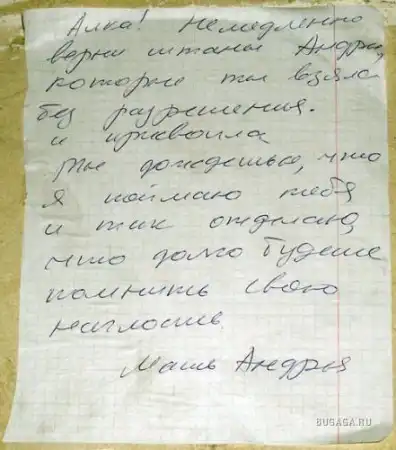 Алка! Немедленно
верни штаны Андрея,
которые ты взяла
без разрешения.
и присвоила
Ты дождешься, что
я поймаю тебя
и так отделаю,
что долго будешь
помнить свою
наглость.
Мать Андрея
BUGAGA.RU